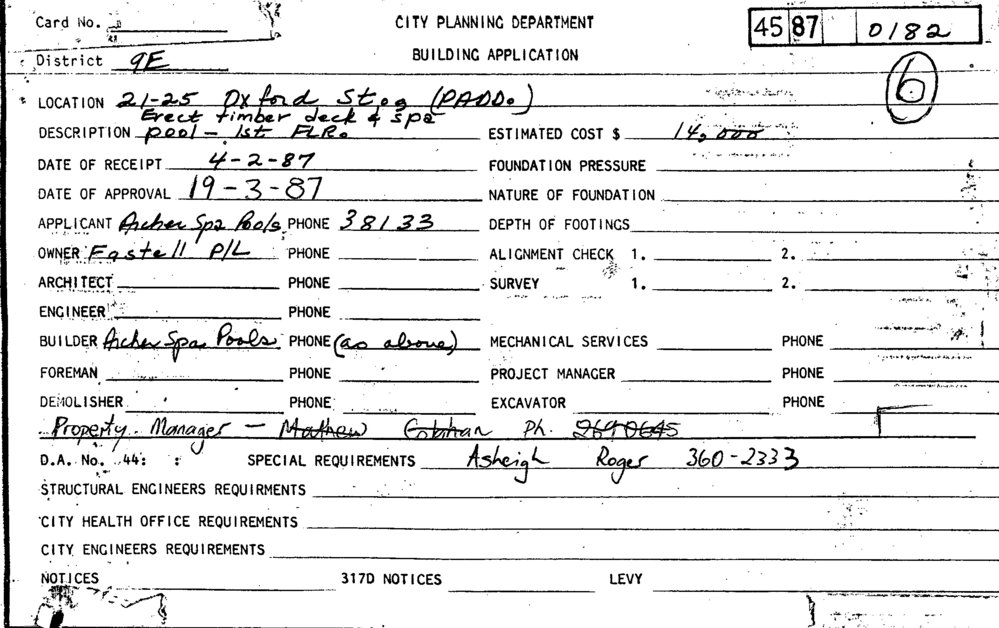 Card No. CITY PLANNING DEPARTMENT 45 87 0182
District 9E BUILDING APPLICATION 6
LOCATION 21-25 Oxford St., (PADD.)
Erect timber deck & spa
DESCRIPTION pool - 1st FLR. ESTIMATED COST $ 14,000
DATE OF RECEIPT 4-2-87 FOUNDATION PRESSURE
DATE OF APPROVAL 19-3-87 NATURE OF FOUNDATION
APPLICANT Archer Spa Pools PHONE 38133 DEPTH OF FOOTINGS
OWNER Fastell P/L PHONE ALIGNMENT CHECK 1. 2.
ARCHITECT PHONE SURVEY 1. 2.
ENGINEER PHONE
BUILDER Archer Spa Pools PHONE (as above) MECHANICAL SERVICES PHONE
FOREMAN PHONE PROJECT MANAGER PHONE
DEMOLISHER PHONE EXCAVATOR PHONE
Property Manager - Mathew Ph. 2690645
D.A. No. 44: : SPECIAL REQUIREMENTS Asheigh Roger 360-2333
STRUCTURAL ENGINEERS REQUIRMENTS
CITY HEALTH OFFICE REQUIREMENTS
CITY ENGINEERS REQUIREMENTS
NOTICES 317D NOTICES LEVY